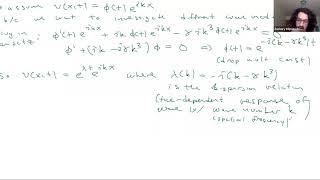 assume v(x,t) = φ(t) e^{ikx}
b/c we want to investigate different wave mod
φ'(t) e^{ikx} + ik φ(t) e^{ikx} - γ i k³ φ(t) e^{ikx} =
φ' + (ik - iγk³) φ = 0 ⇒ φ(t) = e^{-i(k-γk³)t}
(drop mult const)
so v(x,t) = e^{λt} e^{ikx} where λ(k) = -i(k - γk³)
is the dispersion relation
(time-dependent response of
wave w/ wave number k
(spatial frequency)